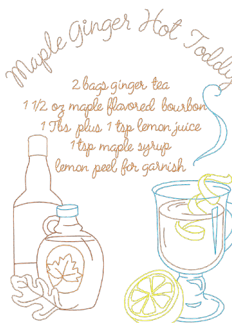 Maple Ginger Hot Toddy
2 bags ginger tea
1 1/2 oz maple flavored bourbon
1 Tbs plus 1 tsp lemon juice
1 tsp maple syrup
lemon peel for garnish